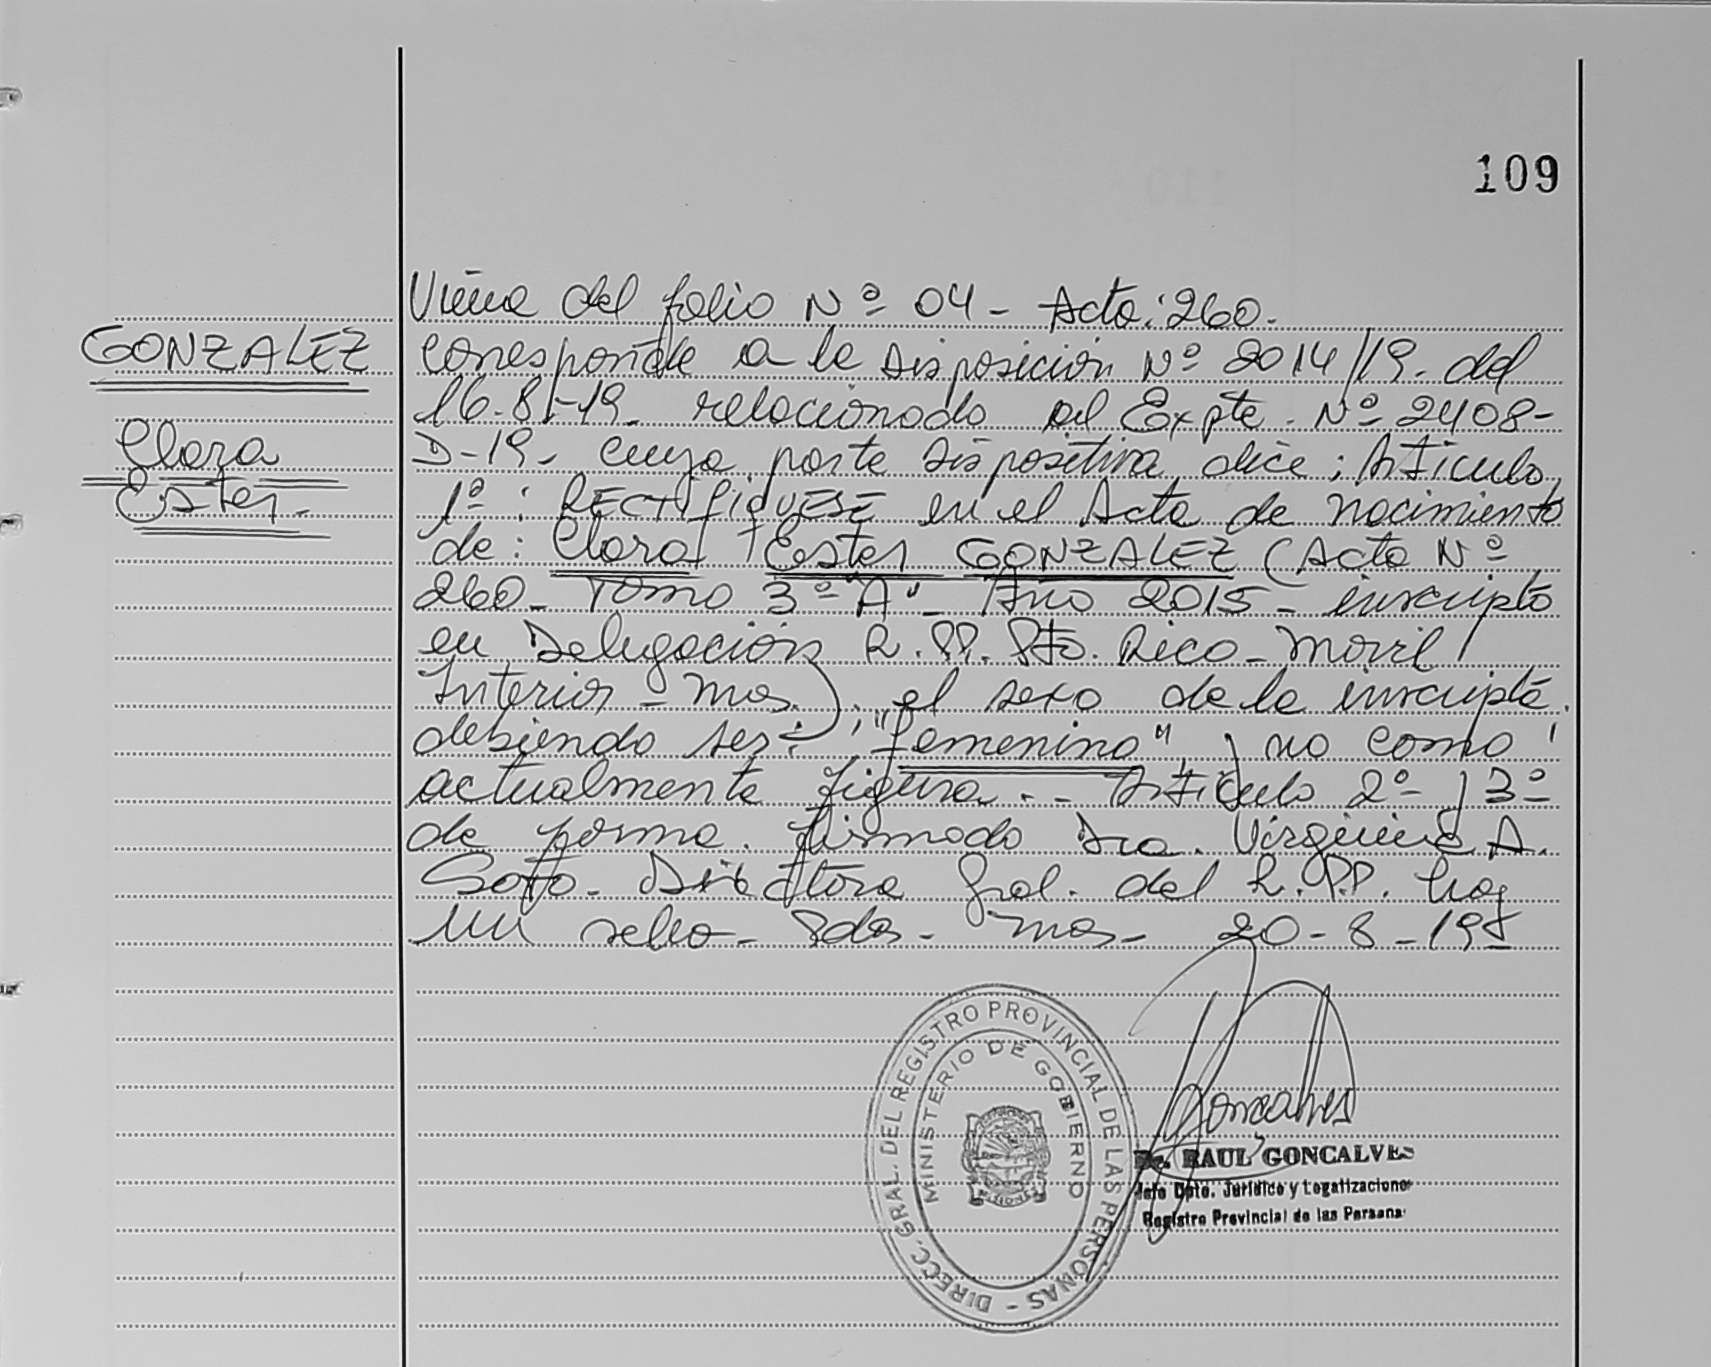 109
GONZALEZ
Clara
Ester.
Viene del folio Nº 04 - Acta: 260.
corresponde a la Disposición Nº 2014/19. del
16-8-19. relacionado al Expte. Nº 2408-
D-19. cuya parte dispositiva dice: Artículo
1º: RECTIFIQUESE en el Acta de nacimiento
de: Clara Ester GONZALEZ (Acta Nº
260 - Tomo 3º "A" - Año 2015 - inscripta
en Delegación R.PP. Pto. Rico - Movil
Interior - Mnes.), el sexo de la inscripta.
debiendo ser: "femenino", y no como
actualmente figura. - Artículo 2º y 3º
de forma. firmado Dra. Virginia A.
Soto - Directora Gral. del R.P.P. hay
un sello - Pdas. - Mnes - 20 - 8 - 19
DIRECC. GRAL. DEL REGISTRO PROVINCIAL DE LAS PERSONAS -
MINISTERIO DE GOBIERNO
Goncalves
Dr. RAUL GONCALVES
Jefe Dpto. Jurídico y Legalizaciones
Registro Provincial de las Personas